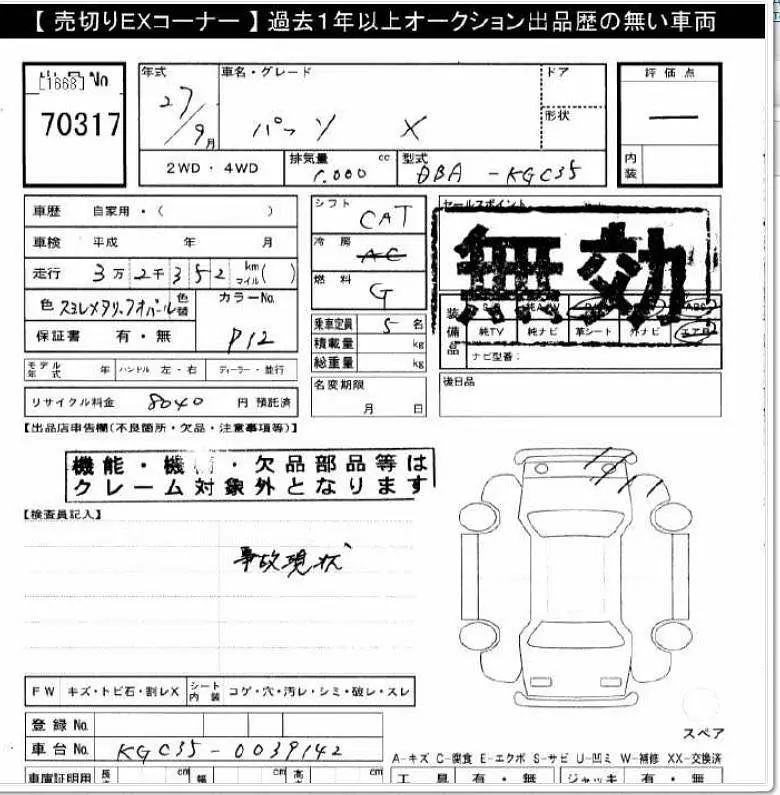 【 売切りEXコーナー 】過去1年以上オークション出品歴の無い車両
[1668] No
70317
年式
27/9月
車名・グレード
パッソ X
ドア
形状
評価点
―
内装
2WD・4WD
排気量 cc
1.000
型式
DBA -KGC35
車歴 自家用・( )
車検 平成 年 月
走行 3万2千352 km マイル( )
色 スミレメタリックオパール 色替
カラーNo.
P12
保証書 有・無
モデル年式 年 ハンドル 左・右 ディーラー・並行
リサイクル料金 8040 円 預託済
シフト
CAT
冷房
AC
燃料
G
乗車定員 5 名
積載量 kg
総重量 kg
名変期限
月 日
セールスポイント
無効
装備品
純TV 純ナビ 革シート 外ナビ エアB
ナビ型番:
後日品
【出品店申告欄(不良箇所・欠品・注意事項等)】
機能・機 ・欠品部品等は
クレーム対象外となります
【検査員記入】
事故現状
FW キズ・トビ石・割レX シート内装 コゲ・穴・汚レ・シミ・破レ・スレ
登録No.
車台No. KGC35-0039142
スペア
A-キズ C-腐食 E-エクボ S-サビ U-凹ミ W-補修 XX-交換済
車庫証明用 長さ cm 幅 cm 高さ cm
工具 有・無 ジャッキ 有・無